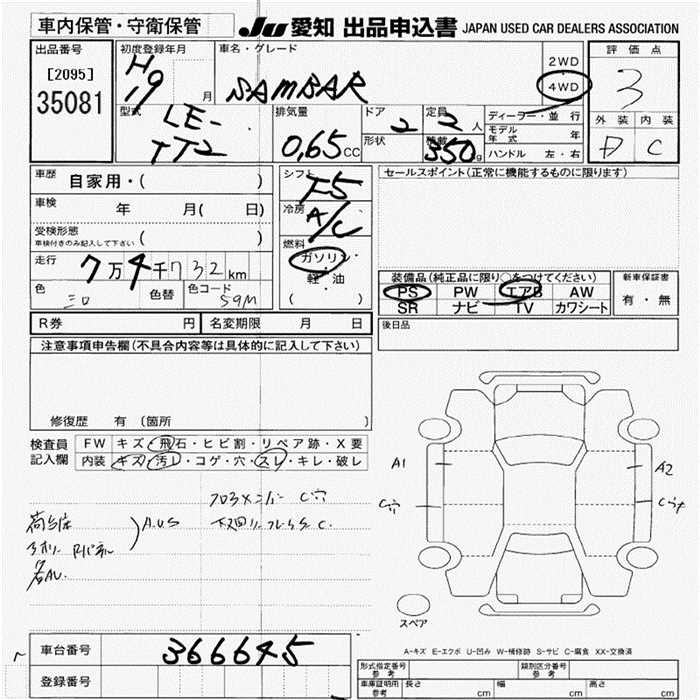 車内保管・守衛保管
JU 愛知 出品申込書 JAPAN USED CAR DEALERS ASSOCIATION
出品番号
[2095]
35081
初度登録年月
H9
19 月
車名・グレード
SAMBAR
2WD
4WD
評価点
3
外装 内装
D C
型式
LE-
TT2
排気量
0,65 CC
ドア
2
形状
定員
2 人
積載
350 kg
ディーラー・並行
モデル年式 年
ハンドル 左・右
車歴
自家用・( )
車検
年 月( 日)
受検形態
車検付きのみ記入して下さい ( )
走行
7万4千732km
色
色替
色コード
59M
シフト
F5
冷房
A/C
燃料
ガソリン
軽・油
( )
セールスポイント(正常に機能するものに限ります)
装備品(純正品に限り○をつけてください)
PS PW エアB AW
SR ナビ TV カワシート
新車保証書
有・無
R券 円 名変期限 月 日
後日品
注意事項申告欄(不具合内容等は具体的に記入して下さい)
修復歴 有 (箇所
検査員
記入欄
FW キズ・飛石・ヒビ割・リペア跡・X要
内装 キズ・汚レ・コゲ・穴・スレ・キレ・破レ
フロアメンバー C穴
下回リフレームC.
A.U.S
A1
A2
C穴
スペア
A-キズ E-エクボ U-凹み W-補修跡 S-サビ C-腐食 XX-交換済
車台番号
366645
登録番号
形式指定番号
参考
類別区分番号
参考
車庫証明用
参考
長さ cm 幅 cm 高さ cm